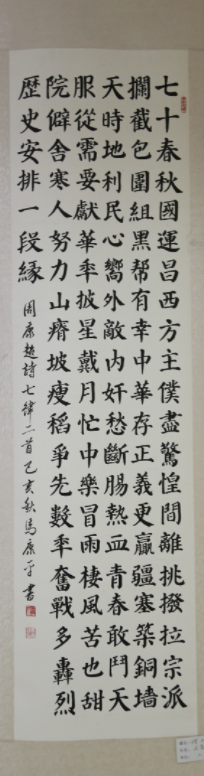 七十春秋國運昌西方主僕盡驚惶間離挑撥拉宗派
攔截包圍組黑帮有幸中華存正義更贏疆塞築銅墙
天時地利民心嚮外敵内奸愁斷腸熱血青春敢鬥天
服從需要獻華秊披星戴月忙中樂冒雨棲風苦也甜
院僻舍寒人努力山瘠坡瘦稻爭先數秊奮戰多轟烈
歷史安排一段緣 周康詩七律二首己亥秋馬康平書